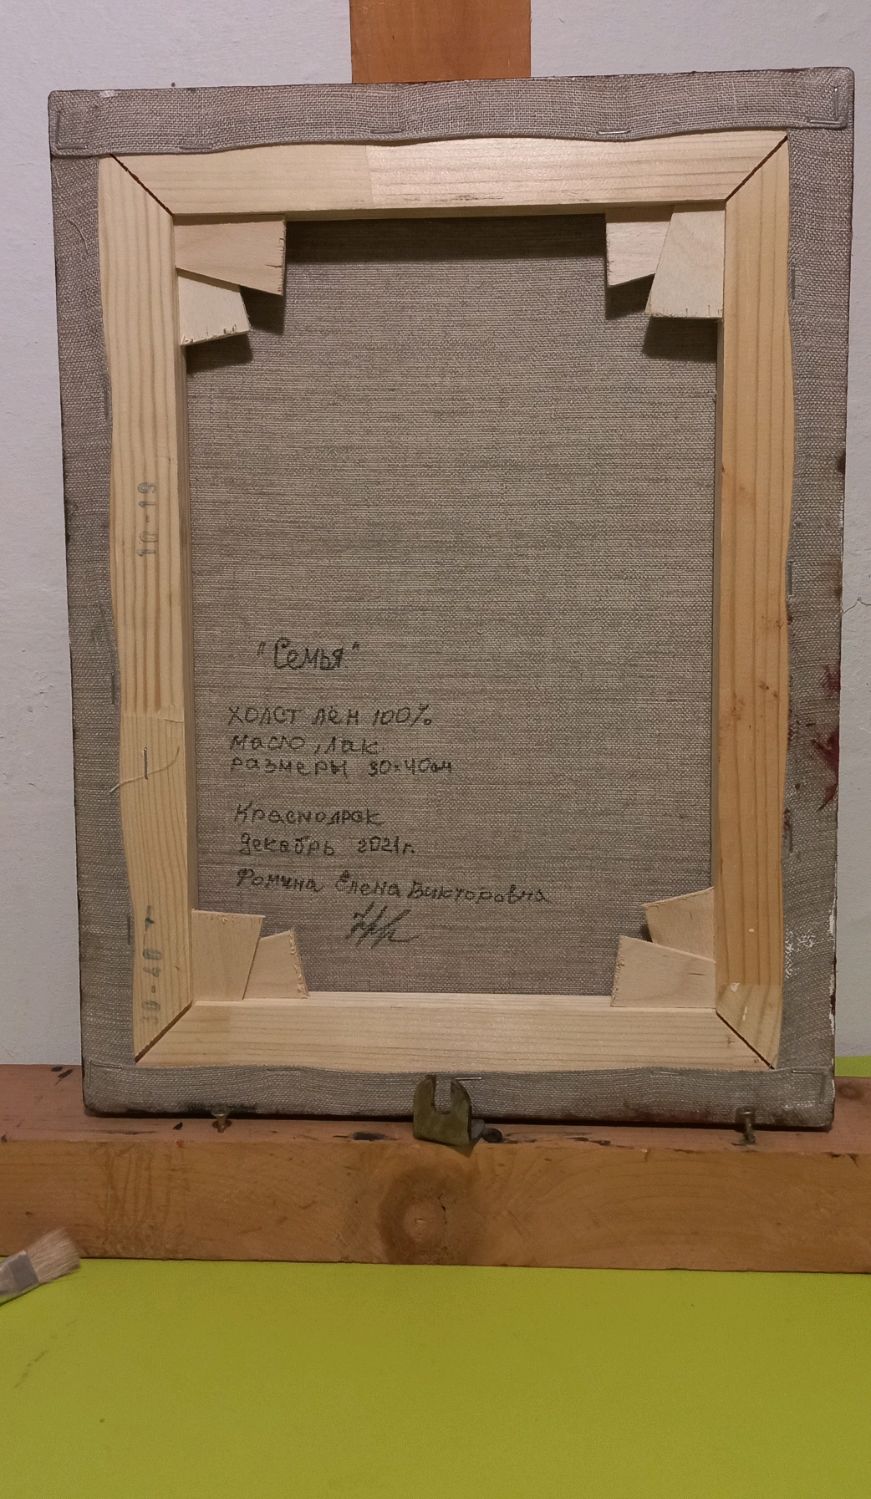 "Семья"
холст лён 100%
масло, лак
размеры 30×40см
Краснодрак
Декабрь 2021г.
Фомина Елена Викторовна
10-19
30-40